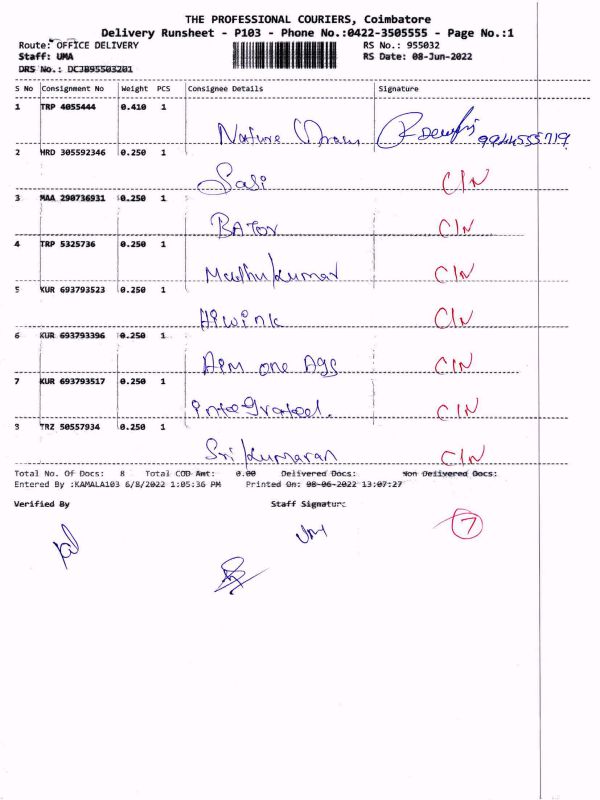 THE PROFESSIONAL COURIERS, Coimbatore
Delivery Runsheet - P103 - Phone No.:0422-3505555 - Page No.:1
Route: OFFICE DELIVERY RS No.: 955032
Staff: UMA RS Date: 08-Jun-2022
DRS No.: DCJB95503201
S No Consignment No Weight PCS Consignee Details Signature
1 TRP 4055444 0.410 1
Nature 9944555719
2 HRD 305592346 0.250 1
Sasi C/N
3 MAA 290736931 0.250 1
C/N
4 TRP 5325736 0.250 1
Madhu kumar C/N
5 KUR 693793523 0.250 1
C/N
6 KUR 693793396 0.250 1
one C/N
7 KUR 693793517 0.250 1
C/N
TRZ 50557934 0.250 1
Sri kumaran C/N
Total No. Of Docs: 8 Total COD Amt: 0.00 Delivered Docs: Non Delivered Docs:
Entered By :KAMALA103 6/8/2022 1:05:36 PM Printed On: 08-06-2022 13:07:27
Verified By Staff Signature
7